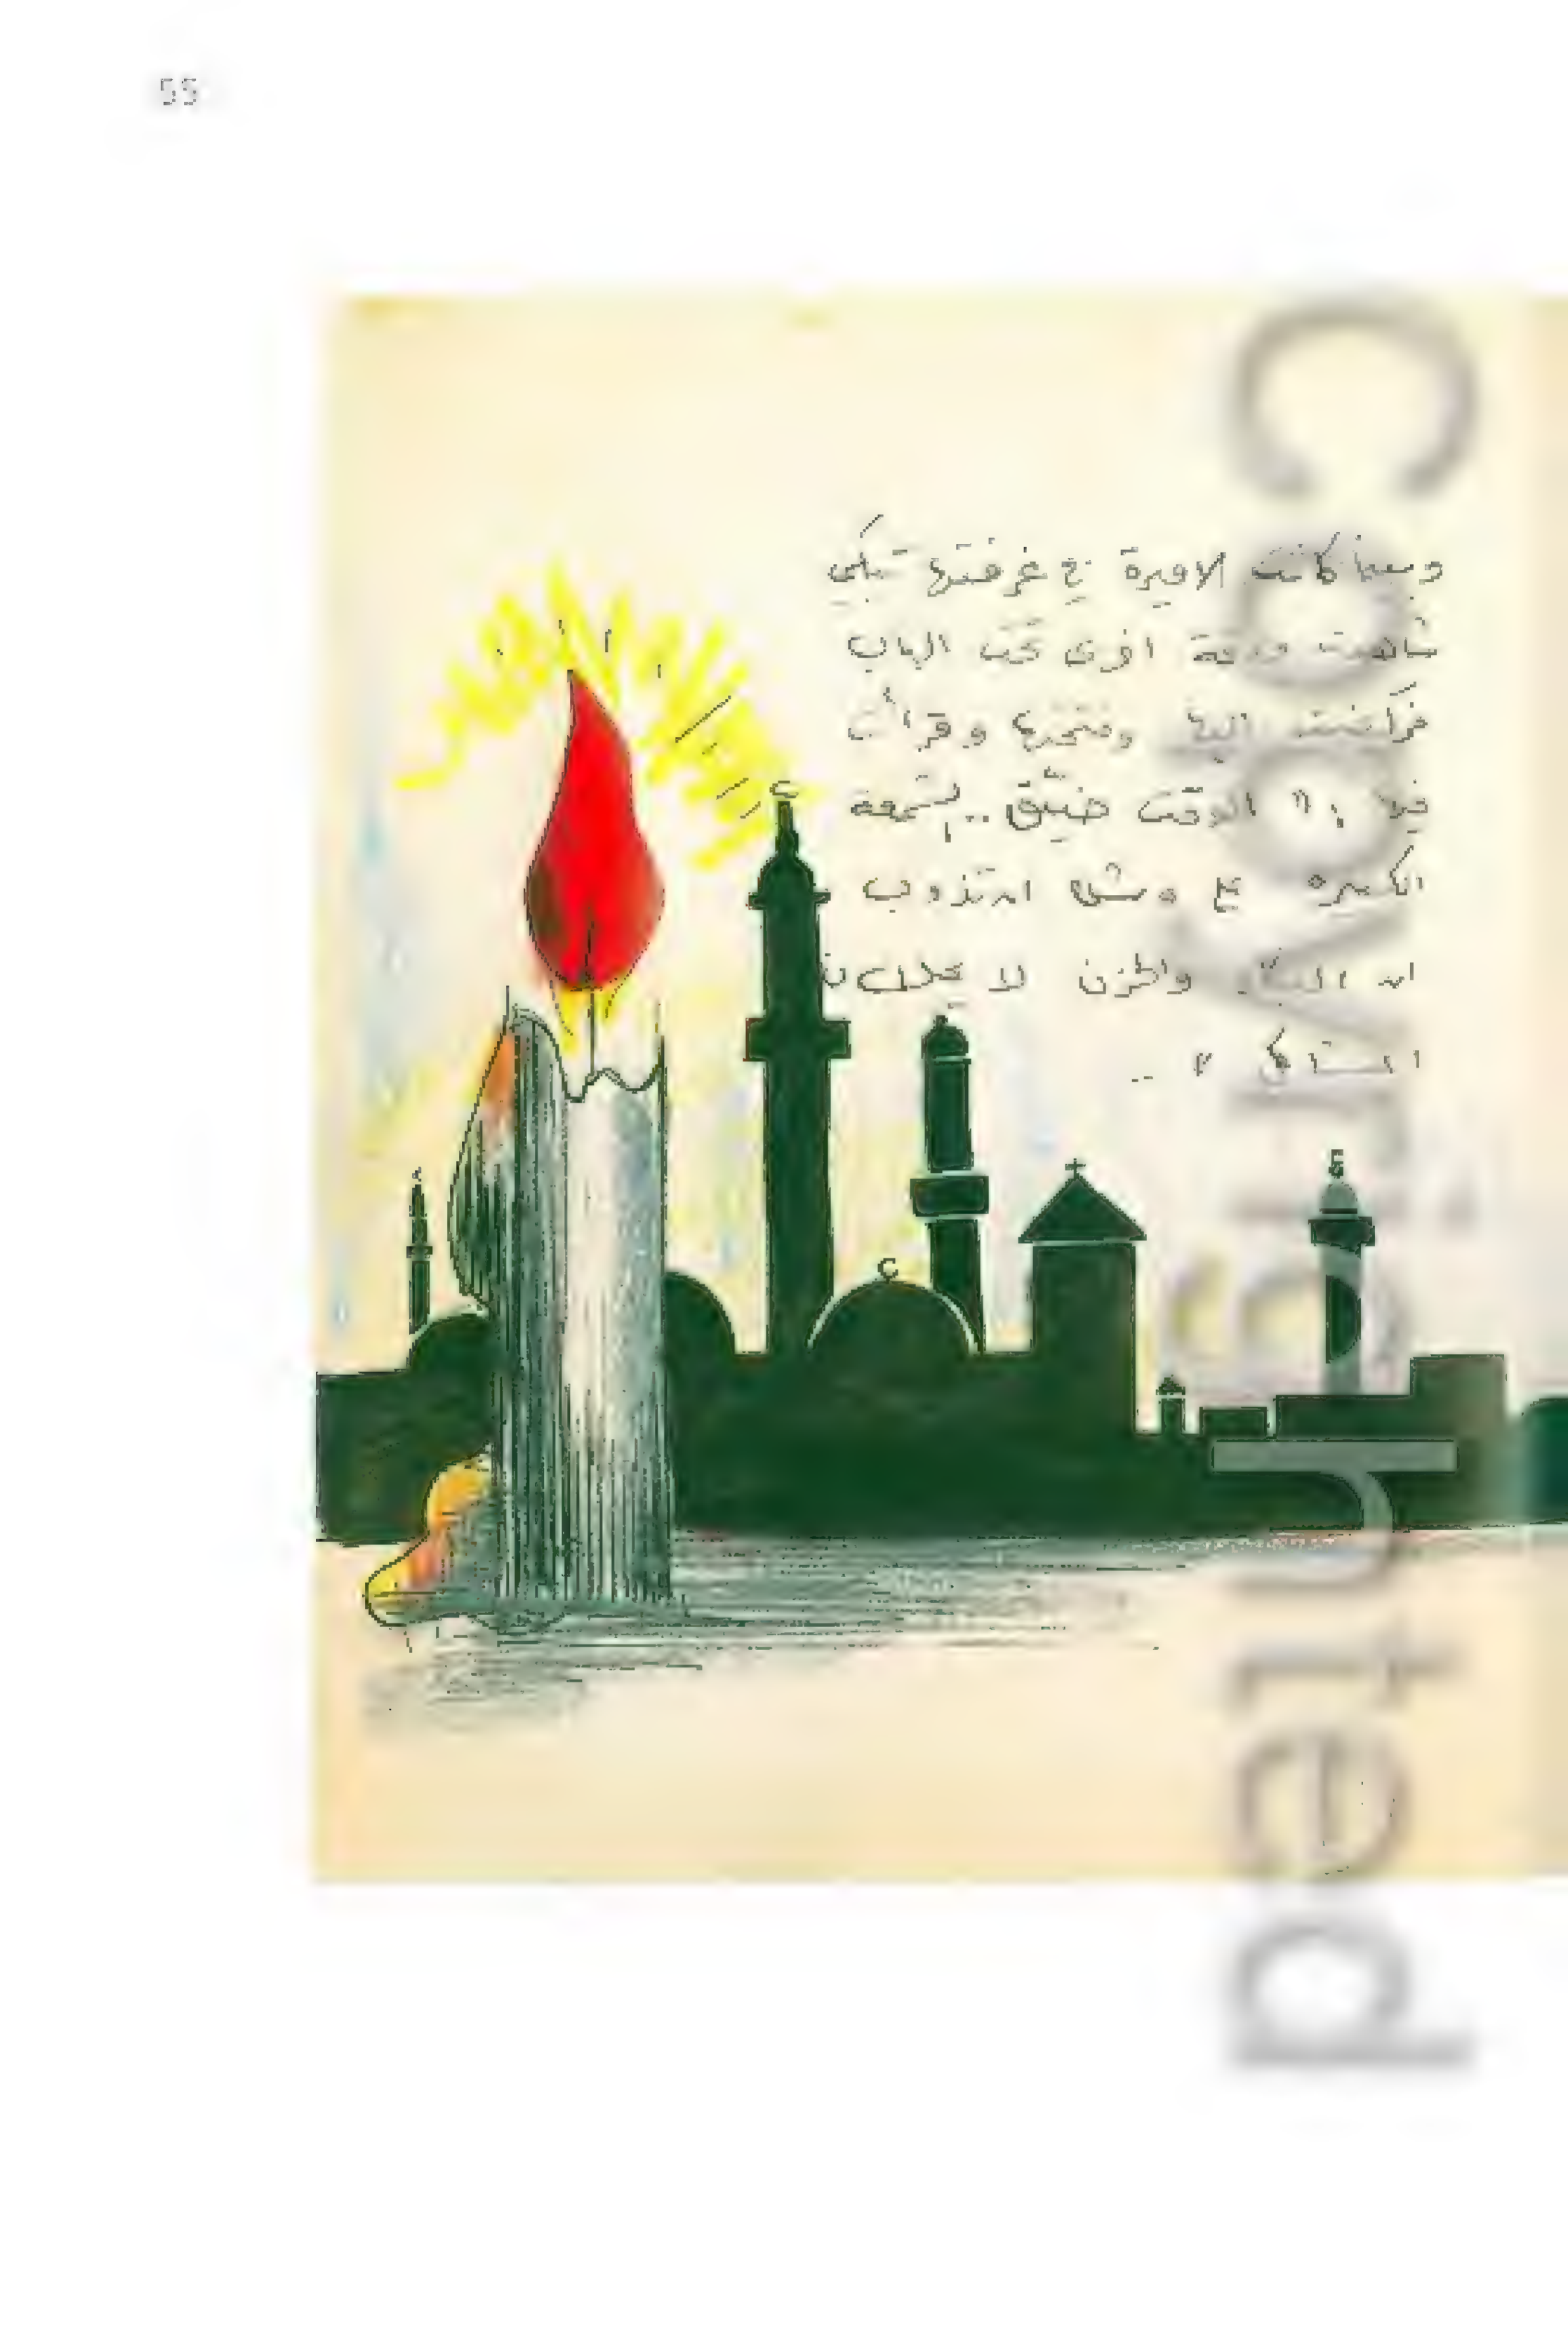 55
وبينما كانت الاميرة في غرفتها تبكي
شاهدت ورقة اخرى تحت الباب
فركضت اليها وفتحتها وقرأت
فيها " ان الوقت ضيّق .. والشمعة
الكبيرة على وشك ان تذوب
ان البكاء والحزن لا يحلان
المشاكل " ..
Copyrighted